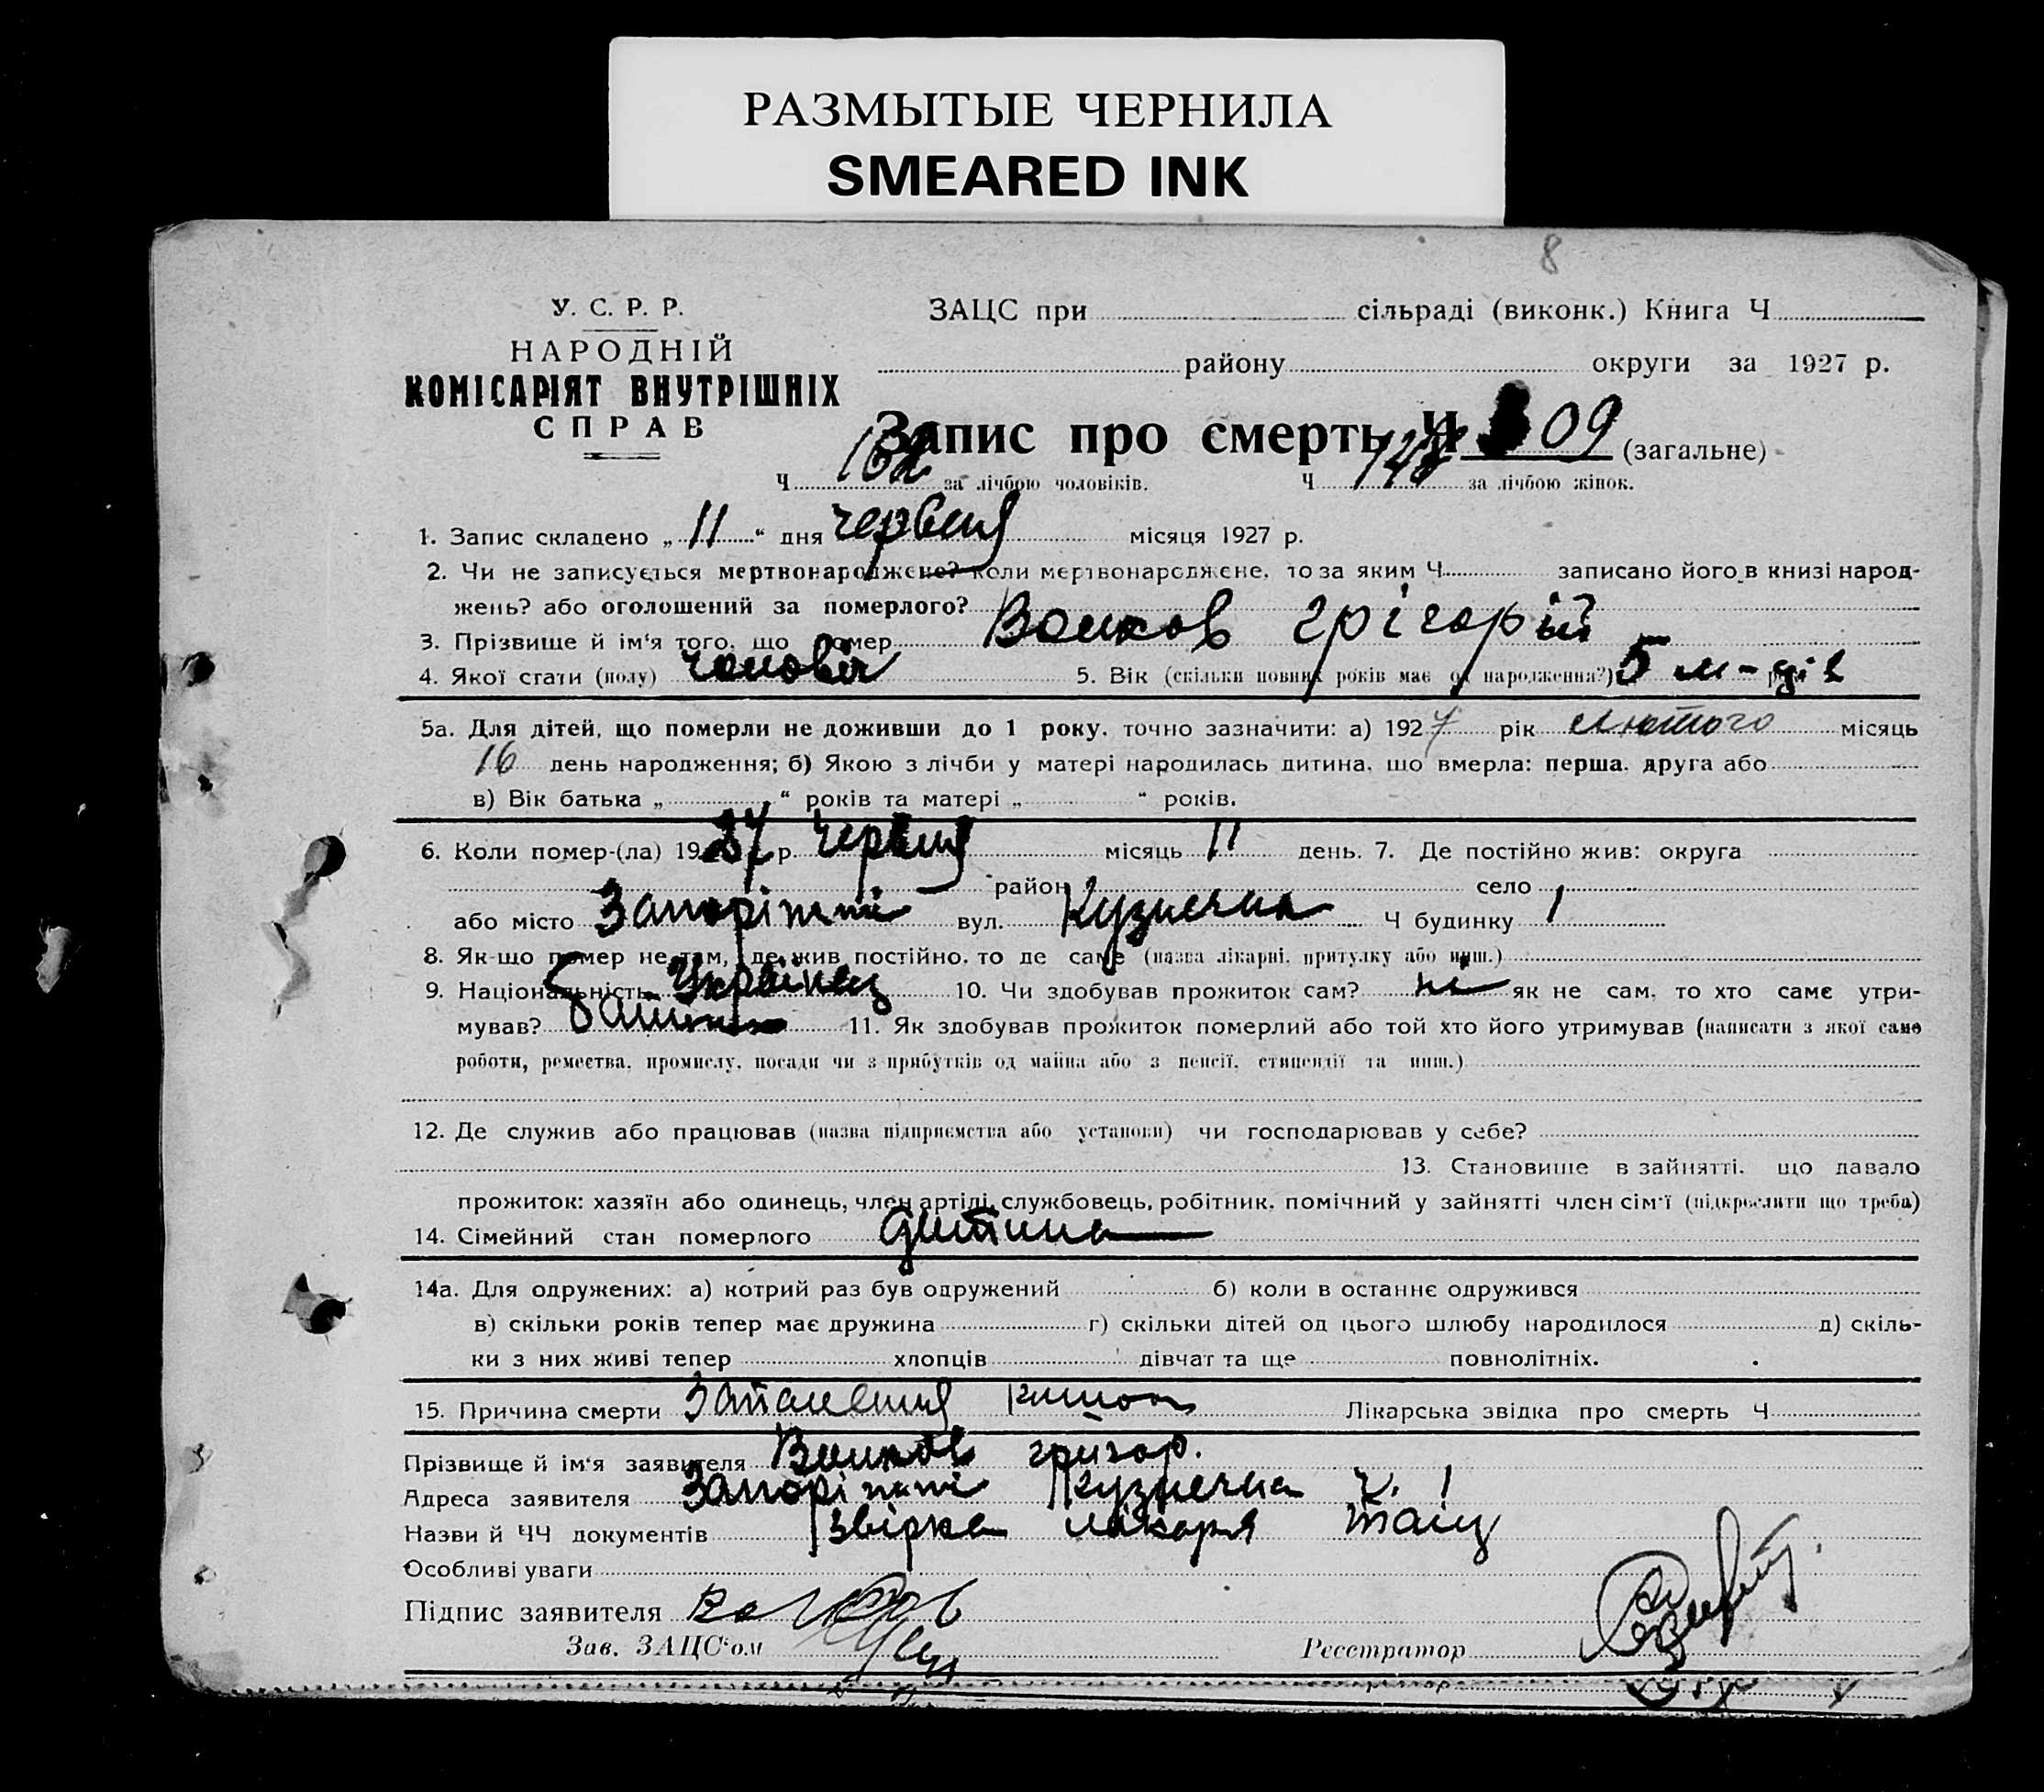 РАЗМЫТЫЕ ЧЕРНИЛА
SMEARED INK
8
У. С. Р. Р.
НАРОДНІЙ
КОМІСАРІЯТ ВНУТРІШНІХ
СПРАВ
ЗАЦС при сільраді (виконк.) Книга Ч
району округи за 1927 р.
Запис про смерть Ч 09 (загальне)
Ч 162 за лічбою чоловіків. Ч 148 за лічбою жінок.
1. Запис складено „ 11 “ дня червня місяця 1927 р.
2. Чи не записується мертвонароджене? коли мертвонароджене, то за яким Ч. записано його в книзі народ-
жень? або оголошений за померлого?
3. Прізвище й ім'я того, що помер Волков Грігорій
4. Якої стати (полу) чоловіч 5. Вік (скільки повних років має од народження?) 5 м-ців
5а. Для дітей, що померли не доживши до 1 року, точно зазначити: а) 1927 рік лютого місяць
16 день народження; б) Якою з лічби у матері народилась дитина, що вмерла: перша, друга або
в) Вік батька „ “ років та матері „ “ років.
6. Коли помер-(ла) 1927 р. червня місяць 11 день. 7. Де постійно жив: округа
район село
або місто Запоріжжі вул. Кузнечна Ч будинку 1
8. Як-що помер не там, де жив постійно, то де саме (назва лікарні, притулку або инш.)
9. Національність Українец 10. Чи здобував прожиток сам? ні як не сам, то хто саме утри-
мував? 11. Як здобував прожиток померлий або той хто його утримував (написати з якої саме
роботи, ремества, промислу, посади чи з прибутків од майна або з пенсії, стипендії та инш.)
12. Де служив або працював (назва підприємства або установи) чи господарював у себе?
13. Становище в зайнятті, що давало
прожиток: хазяїн або одинець, член артілі, службовець, робітник, помічний у зайнятті член сім'ї (підкреслити що треба)
14. Сімейний стан померлого дитина
14а. Для одружених: а) котрий раз був одружений б) коли в останнє одружився
в) скільки років тепер має дружина г) скільки дітей од цього шлюбу народилося д) скіль-
ки з них живі тепер хлопців дівчат та ще повнолітніх.
15. Причина смерти Запалення кишок Лікарська звідка про смерть Ч
Прізвище й ім'я заявителя Волков Григор.
Адреса заявителя Запоріжжі Кузнечна ч. 1
Назви й ЧЧ документів лікаря
Особливі уваги
Підпис заявителя Волков
Зав. ЗАЦС'ом
Реєстратор